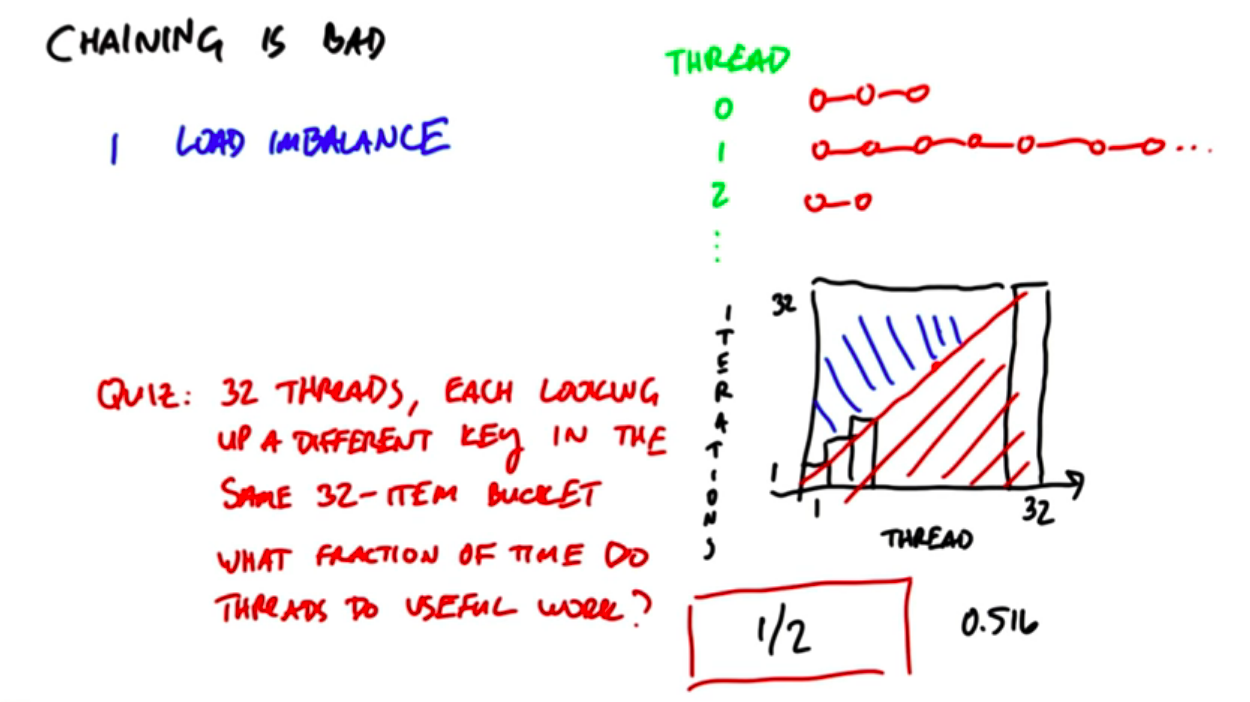 CHAINING IS BAD
1 LOAD IMBALANCE
THREAD
0
1
...
2
⋮
QUIZ: 32 THREADS, EACH LOOKING
UP A DIFFERENT KEY IN THE
SAME 32-ITEM BUCKET
WHAT FRACTION OF TIME DO
THREADS DO USEFUL WORK?
ITERATIONS
32
1
1
32
THREAD
1/2
0.516